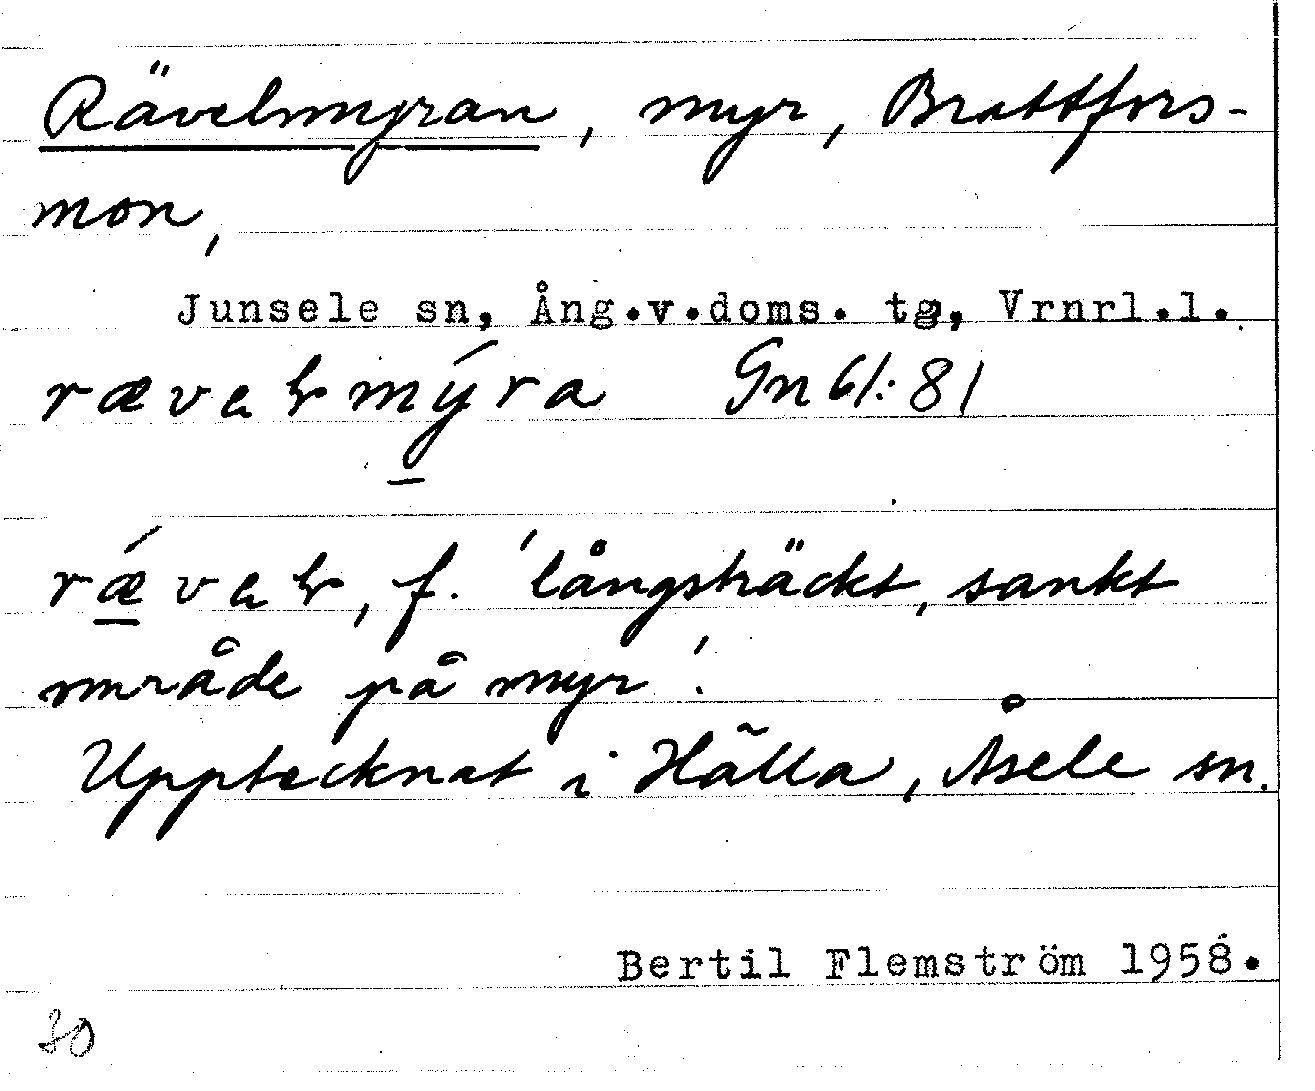 Rävelmyran, myr, Brattfors-
mon,
Junsele sn, Ång.v.doms. tg, Vrnrl.l.
rævaɽmýra Gn 61:81
rǽvaɽ, f. 'långsträckt, sankt
område på myr'.
Upptecknat i Hälla, Åsele sn.
Bertil Flemström 1958.
30